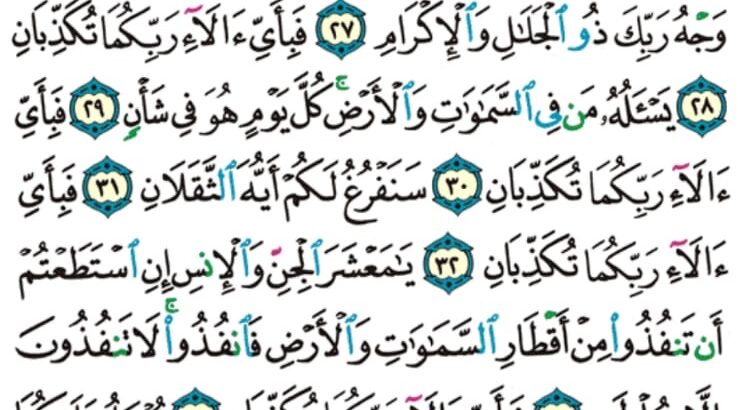 وَجْهُ رَبِّكَ ذُو ٱلْجَلَٰلِ وَٱلْإِكْرَامِ ٢٧ فَبِأَيِّ ءَالَآءِ رَبِّكُمَا تُكَذِّبَانِ
٢٨ يَسْـَٔلُهُۥ مَن فِى ٱلسَّمَٰوَٰتِ وَٱلْأَرْضِ ۚ كُلَّ يَوْمٍ هُوَ فِى شَأْنٍ ٢٩ فَبِأَىِّ
ءَالَآءِ رَبِّكُمَا تُكَذِّبَانِ ٣٠ سَنَفْرُغُ لَكُمْ أَيُّهَ ٱلثَّقَلَانِ ٣١ فَبِأَىِّ
ءَالَآءِ رَبِّكُمَا تُكَذِّبَانِ ٣٢ يَٰمَعْشَرَ ٱلْجِنِّ وَٱلْإِنسِ إِنِ ٱسْتَطَعْتُمْ
أَن تَنفُذُوا۟ مِنْ أَقْطَارِ ٱلسَّمَٰوَٰتِ وَٱلْأَرْضِ فَٱنفُذُوا۟ ۚ لَا تَنفُذُونَ